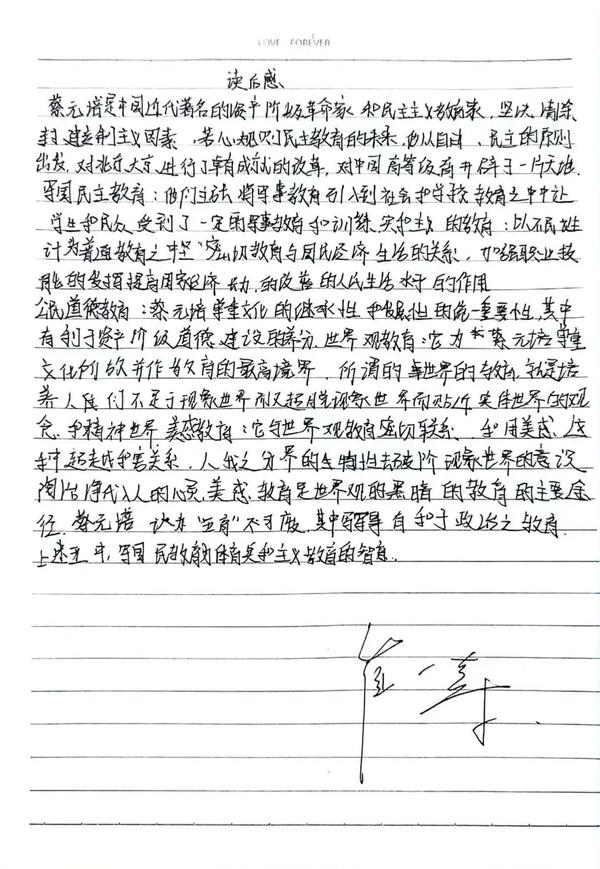 LOVE FOREVER
读后感、
蔡元培是中国近代著名的资产阶级革命家和民主主义教育家,坚决清除
封建专制主义因素,苦心规划民主教育的未来,他从自由、民主的原则
出发,对北京大学进行了卓有成就的改革,对中国高等级育开辟了一片天地.
军国民主教育:他们主张将军事教育引入到社会和学校教育之中让
学生和民众受到了一定的军事教育和训练、实利主义的教育:以人民生
计为普通教育之中坚"密切教育与国民经济生活的关系,加强职业技
能的发挥提高国家经济能力,的改善的人民生活水平的作用
公民道德教育:蔡元培尊重文化的继承性和发展性的统一重要性,其中
有利于资产阶级道德建设的养分.世界观教育:它为蔡元培尊重
文化所欲并作教育的最高境界,所谓的世界的教育,就是培
养人民们不足于现象世界而又超脱现象世界而贴近实体世界的观
念.和精神世界美感教育:它与世界观教育密切联系、利用美感、这
种超越利害关系,人我之分界的生物性去破除现象世界的意识
陶冶净化人的心灵.美感教育是世界观的黑暗的教育的主要途
径.蔡元培认为"五育"不可废,其中军事自和于政治之教育.
上述五中,军国民教育为体育实利主义教育的智育.